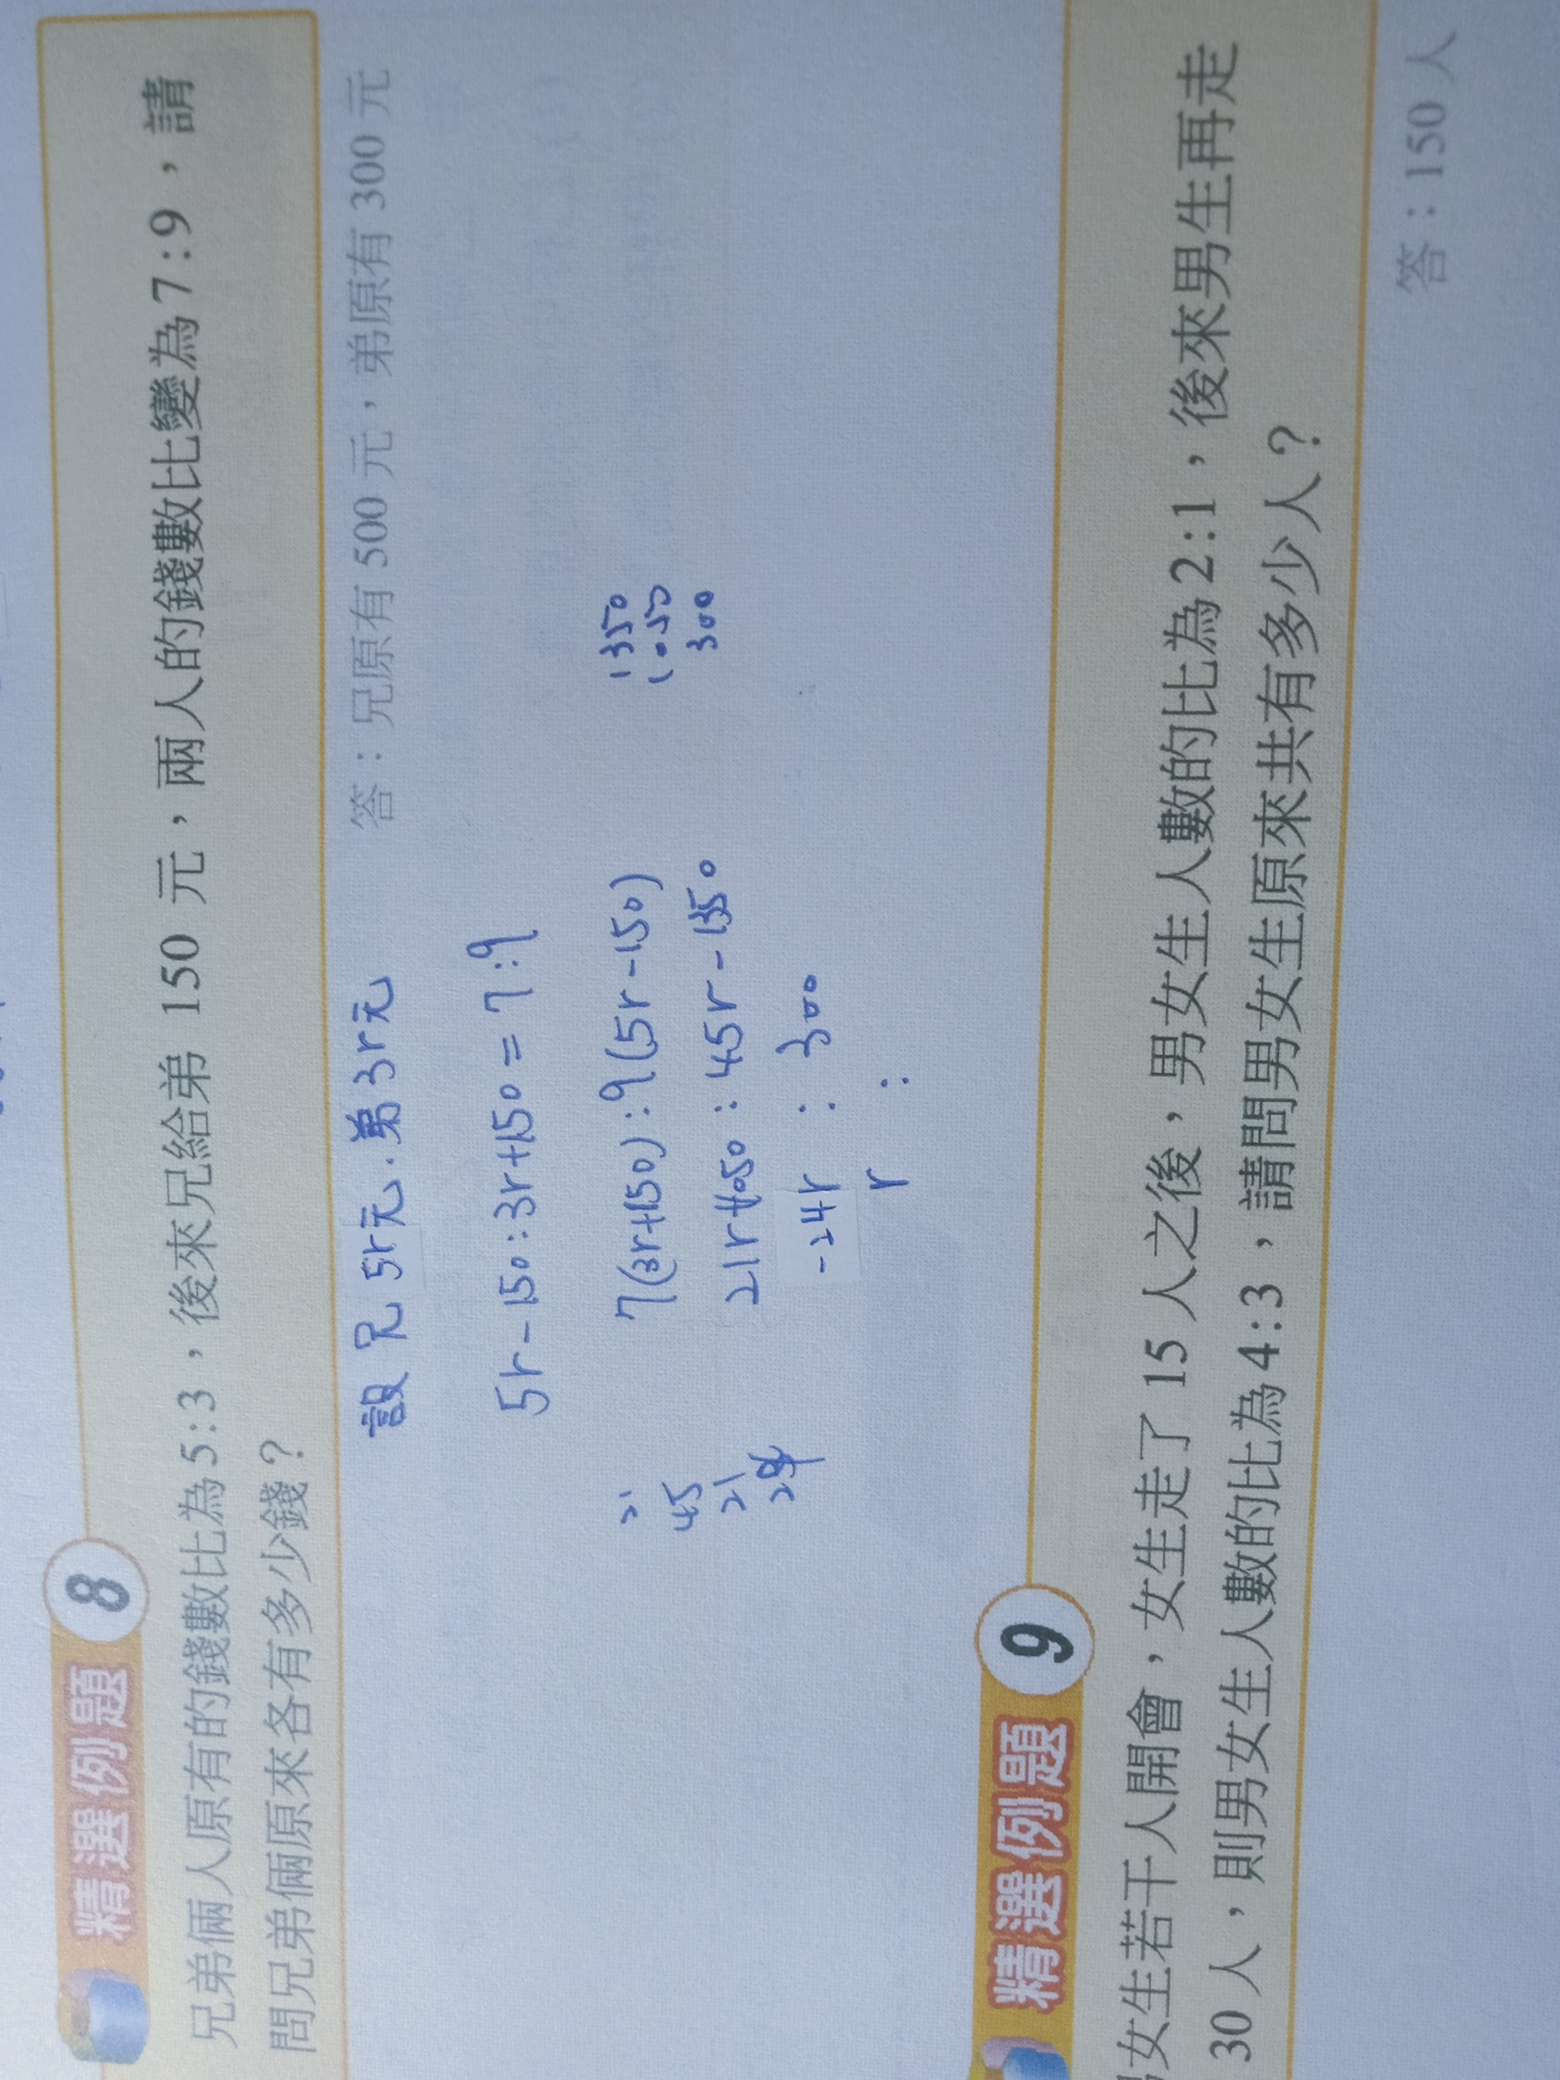 精選例題 8
兄弟倆人原有的錢數比為 5:3,後來兄給弟 150 元,兩人的錢數比變為 7:9,請
問兄弟倆原來各有多少錢?
答:兄原有 500 元,弟原有 300 元
設兄 5r元.弟 3r元
5r-150:3r+150=7:9
7(3r+150):9(5r-150)
21r+1050:45r-1350
-24r : 300
r :
21
45
21
24
1350
1050
300
精選例題 9
男女生若干人開會,女生走了 15 人之後,男女生人數的比為 2:1,後來男生再走
30 人,則男女生人數的比為 4:3,請問男女生原來共有多少人?
答:150 人